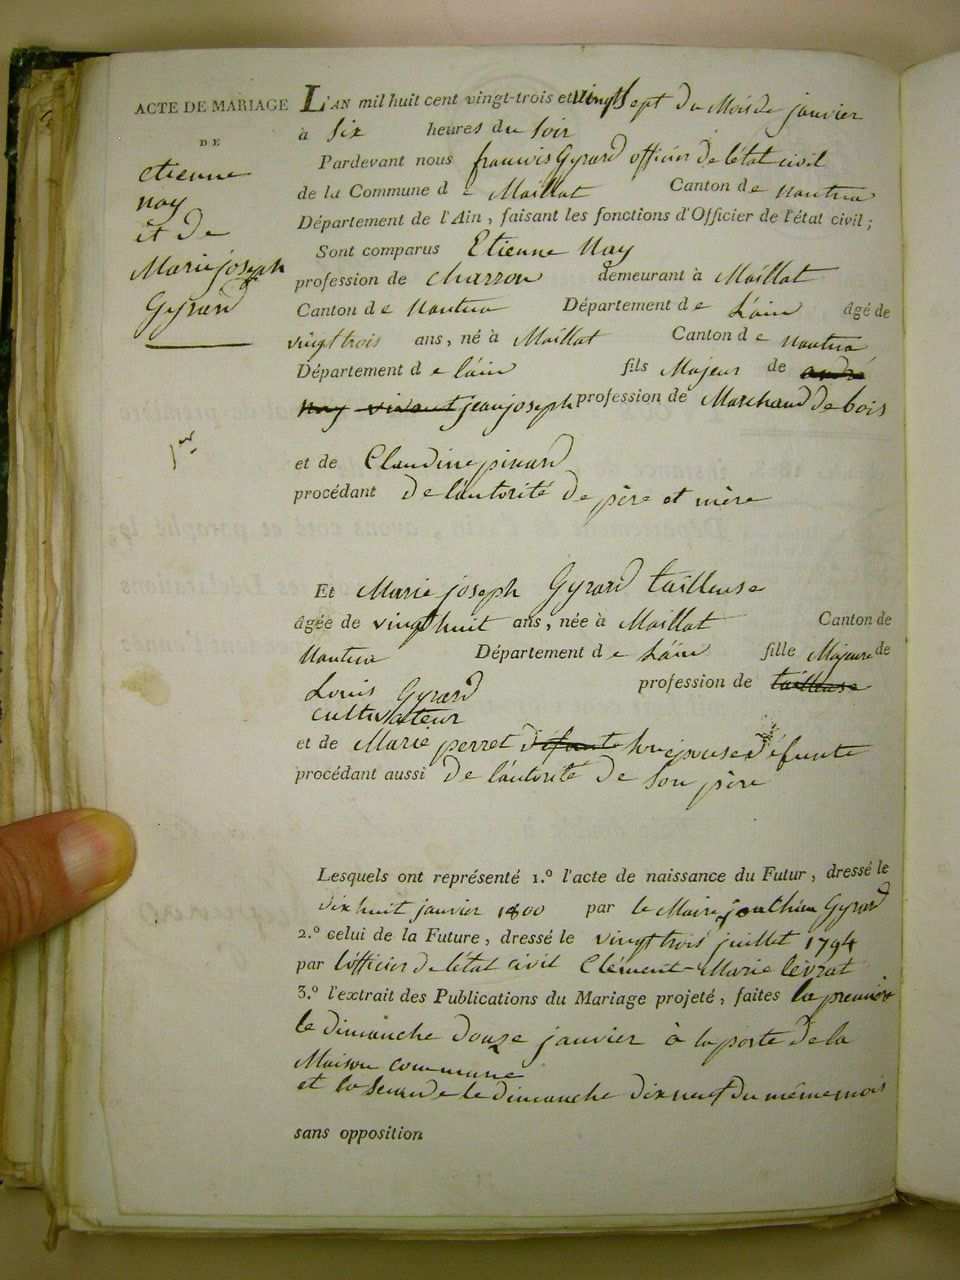 ACTE DE MARIAGE
DE
etienne
nay
et de
Marie joseph
Gyrard
1er
L'AN mil huit cent vingt-trois et vingt sept du Mois de janvier
à Six heures du Soir
Pardevant nous françois Gyrard officier de l'état civil
de la Commune de Maillat Canton de nantua
Département de l'Ain, faisant les fonctions d'Officier de l'état civil;
Sont comparus Etienne Nay
profession de charron demeurant à Maillat
Canton de Nantua Département de L'ain âgé de
vingt trois ans, né à Maillat Canton de nantua
Département de l'ain fils Majeur de andré
nay vivant jean joseph profession de Marchand de bois
et de Claudine pinard
procédant de l'autorité de père et mère
Et Marie joseph Gyrard tailleuse
âgée de vingt huit ans, née à Maillat Canton de
Nantua Département de L'ain fille Majeure de
Louis Gyrard profession de tailleuse
cultivateur
et de Marie perret défunte Son épouse défunte
procédant aussi de l'autorité de Son père
Lesquels ont représenté 1.º l'acte de naissance du Futur, dressé le
dix huit janvier 1800 par le Maire Gyrard
2.º celui de la Future, dressé le vingt trois juillet 1794
par l'officier de l'état civil Clément-Marie levrat
3.º l'extrait des Publications du Mariage projeté, faites la premiere
le dimanche douze janvier à la porte de la
Maison commune
et la Seconde le dimanche dix neuf du même mois
sans opposition